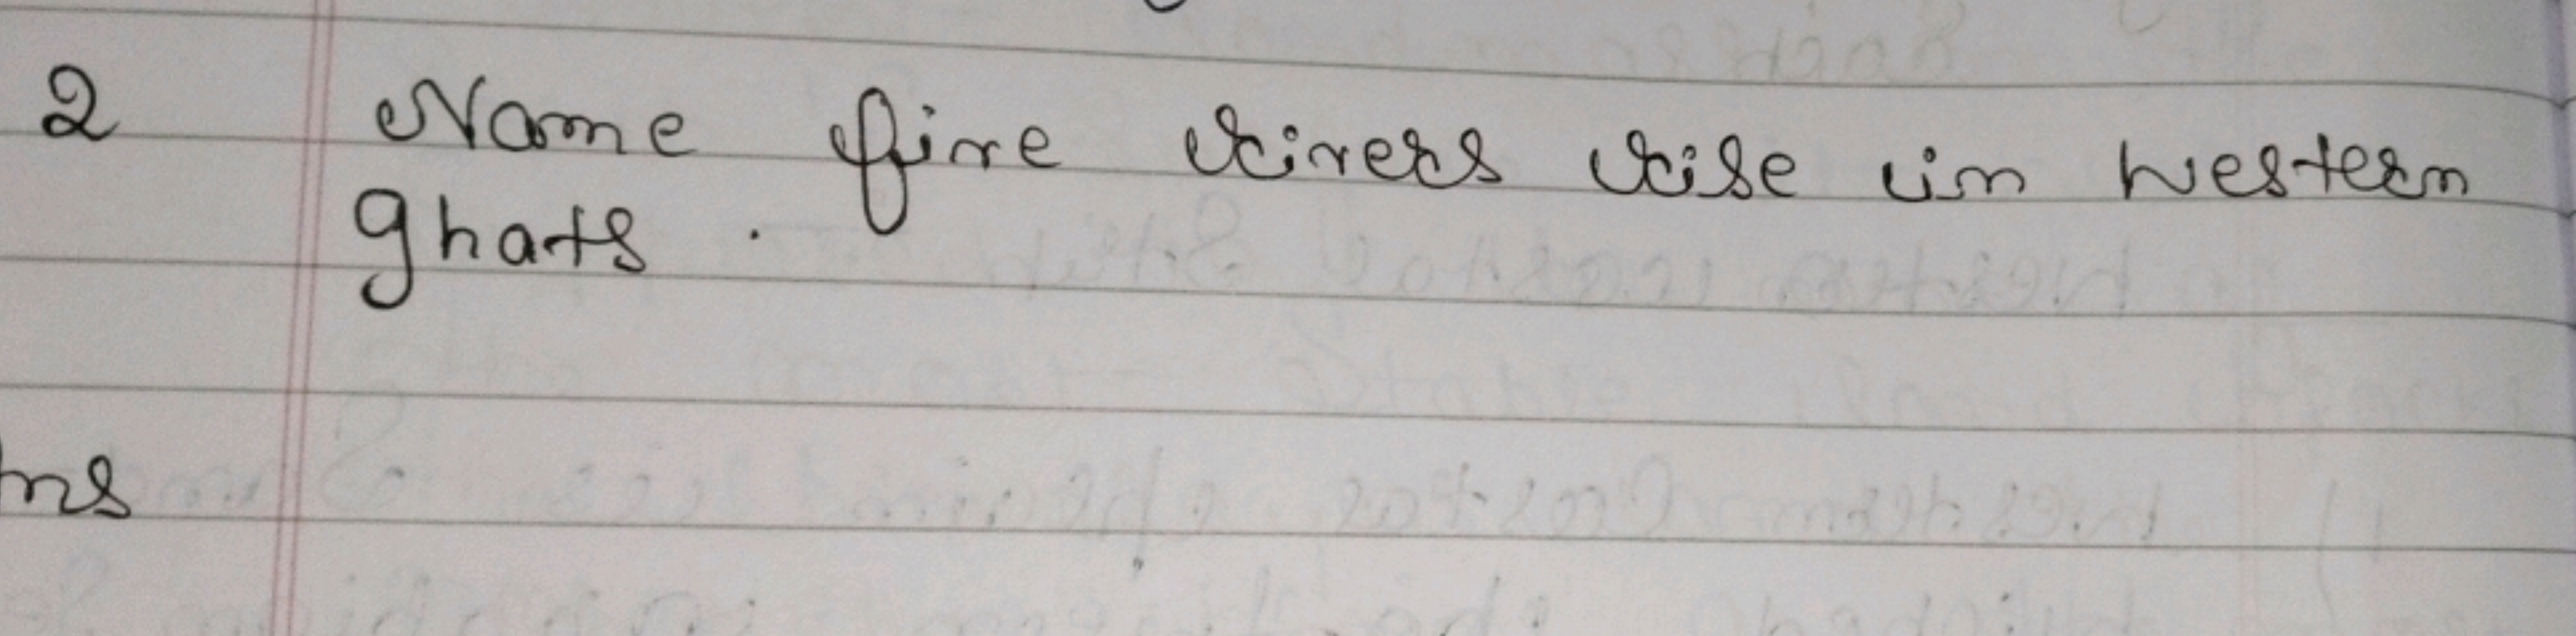 2 Name five rivers rise in western
ghats .
ns